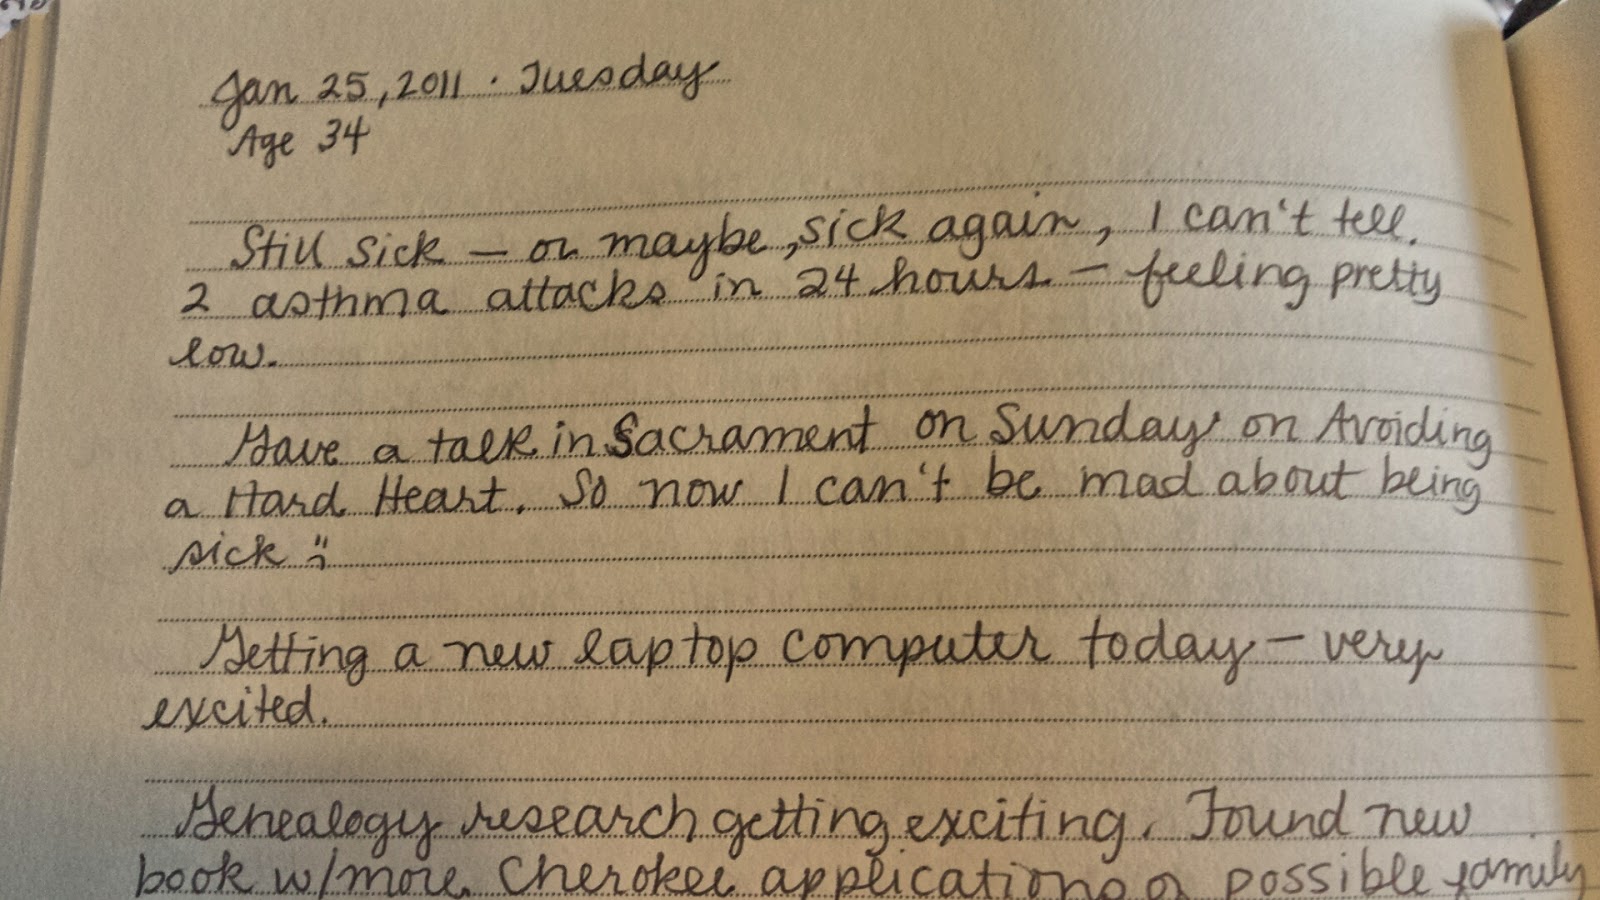 Jan 25, 2011 · Tuesday
Age 34
Still sick – or maybe, sick again, I can't tell.
2 asthma attacks in 24 hours – feeling pretty
low.
Gave a talk in Sacrament on Sunday on Avoiding
a Hard Heart. So now I can't be mad about being
sick
Getting a new laptop computer today – very
excited.
Genealogy research getting exciting. Found new
book w/more Cherokee applications possible family